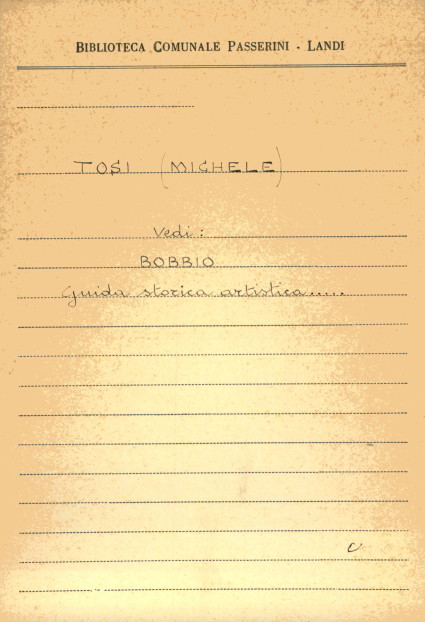 BIBLIOTECA COMUNALE PASSERINI - LANDI
TOSI (MICHELE)
Vedi:
BOBBIO
Guida storica artistica.....
c